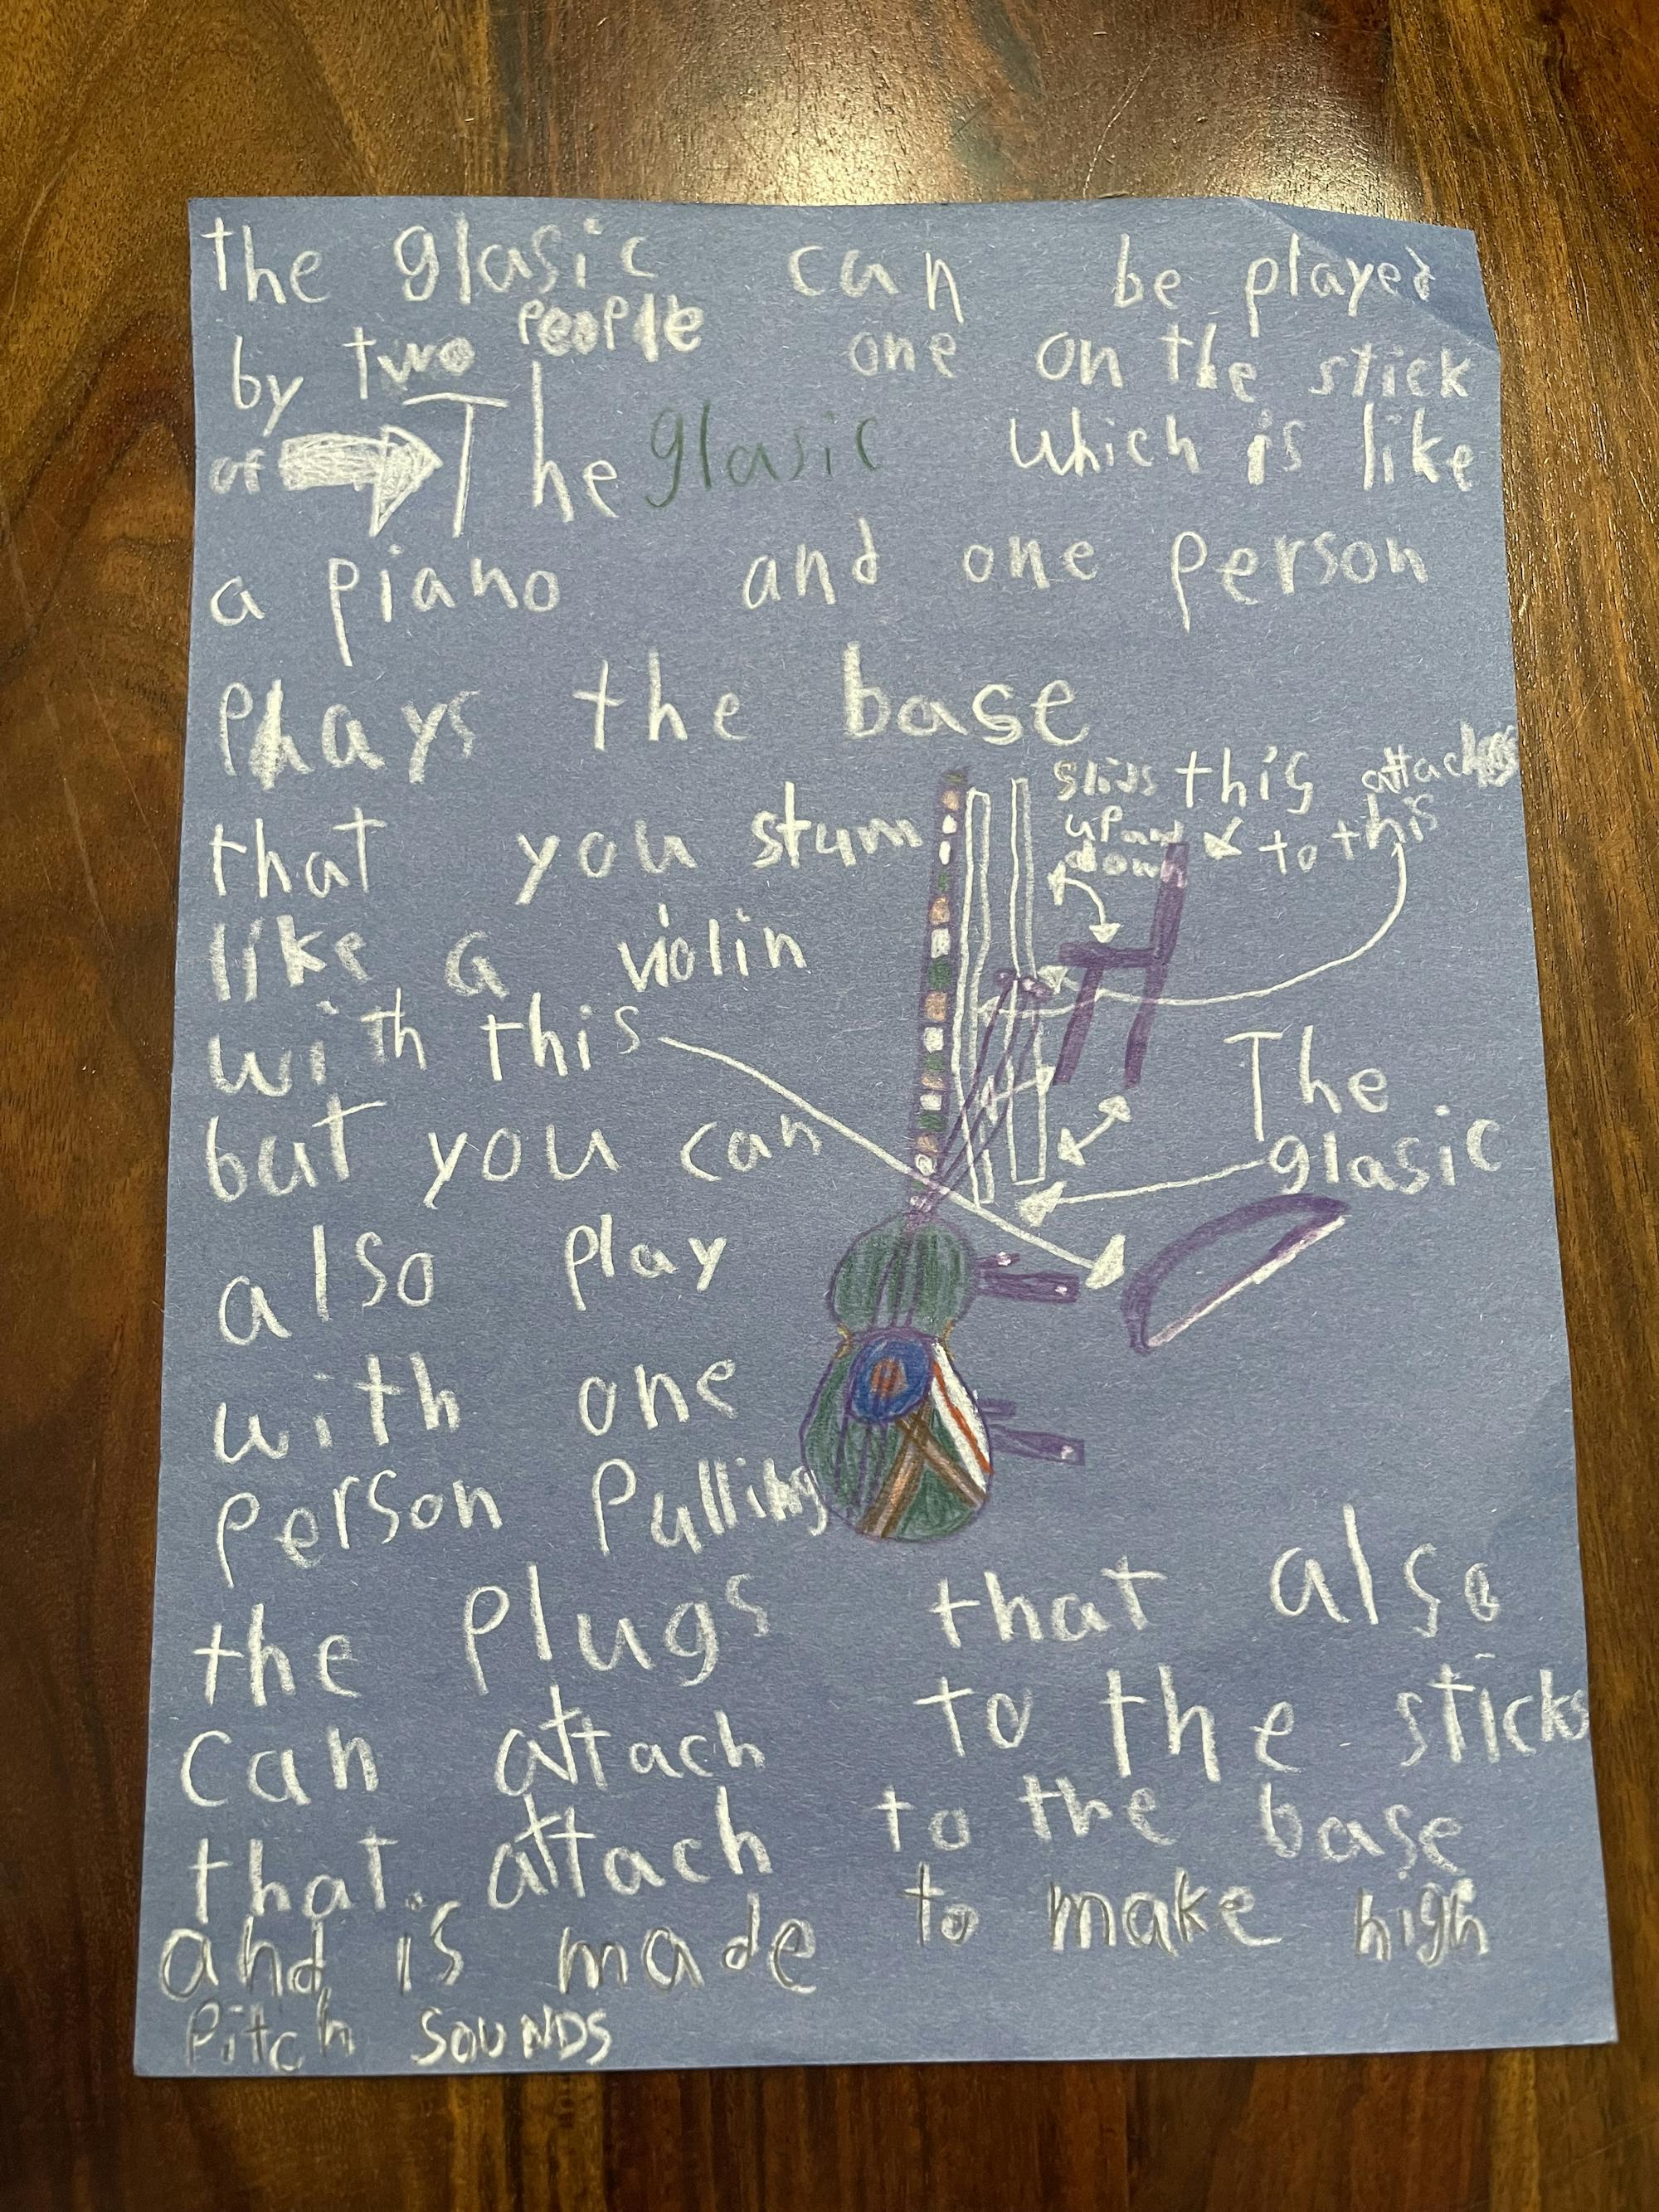 the glasic can be played
by two people one on the stick
of The glasic which is like
a piano and one person
plays the base
that you stum
like a violin
with this
but you can
also play
with one
person pulling
the plugs that also
can attach to the sticks
that attach to the base
and is made to make high
pitch SOUNDS
slids this attaches
up and to this
down
The
glasic